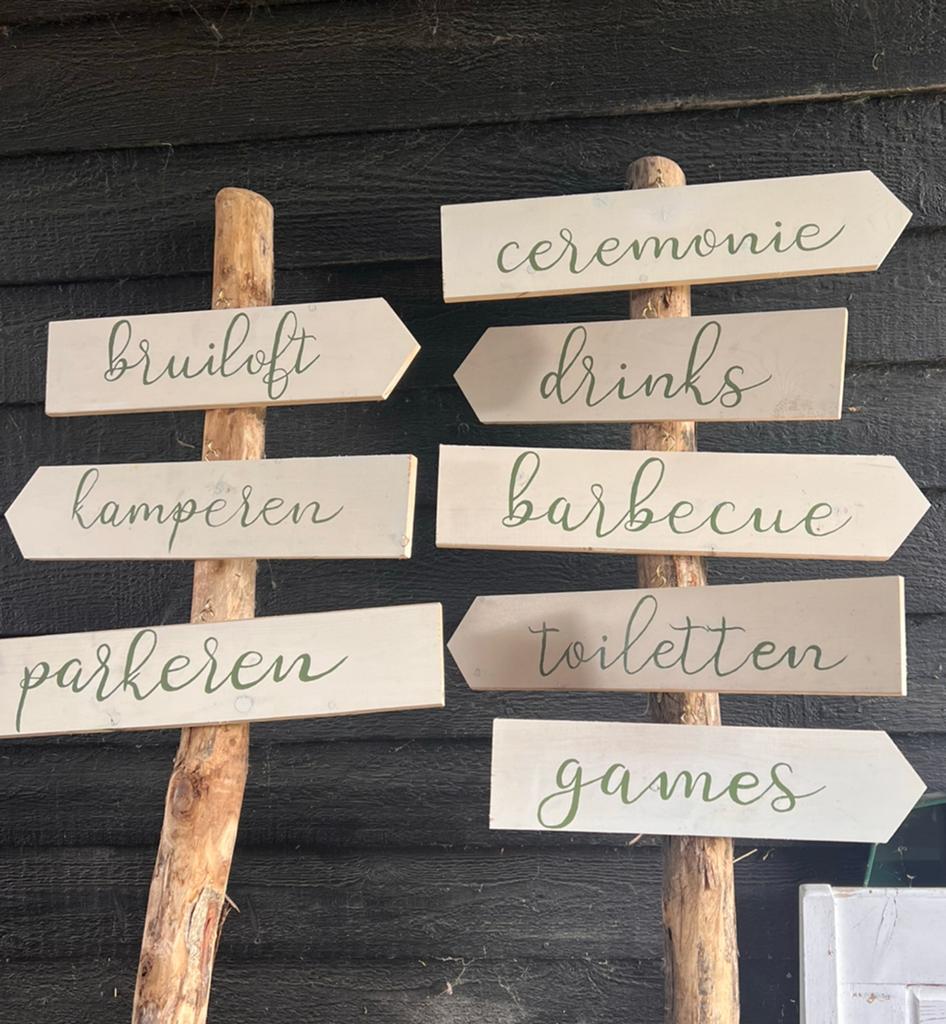 bruiloft
kamperen
parkeren
ceremonie
drinks
barbecue
toiletten
games